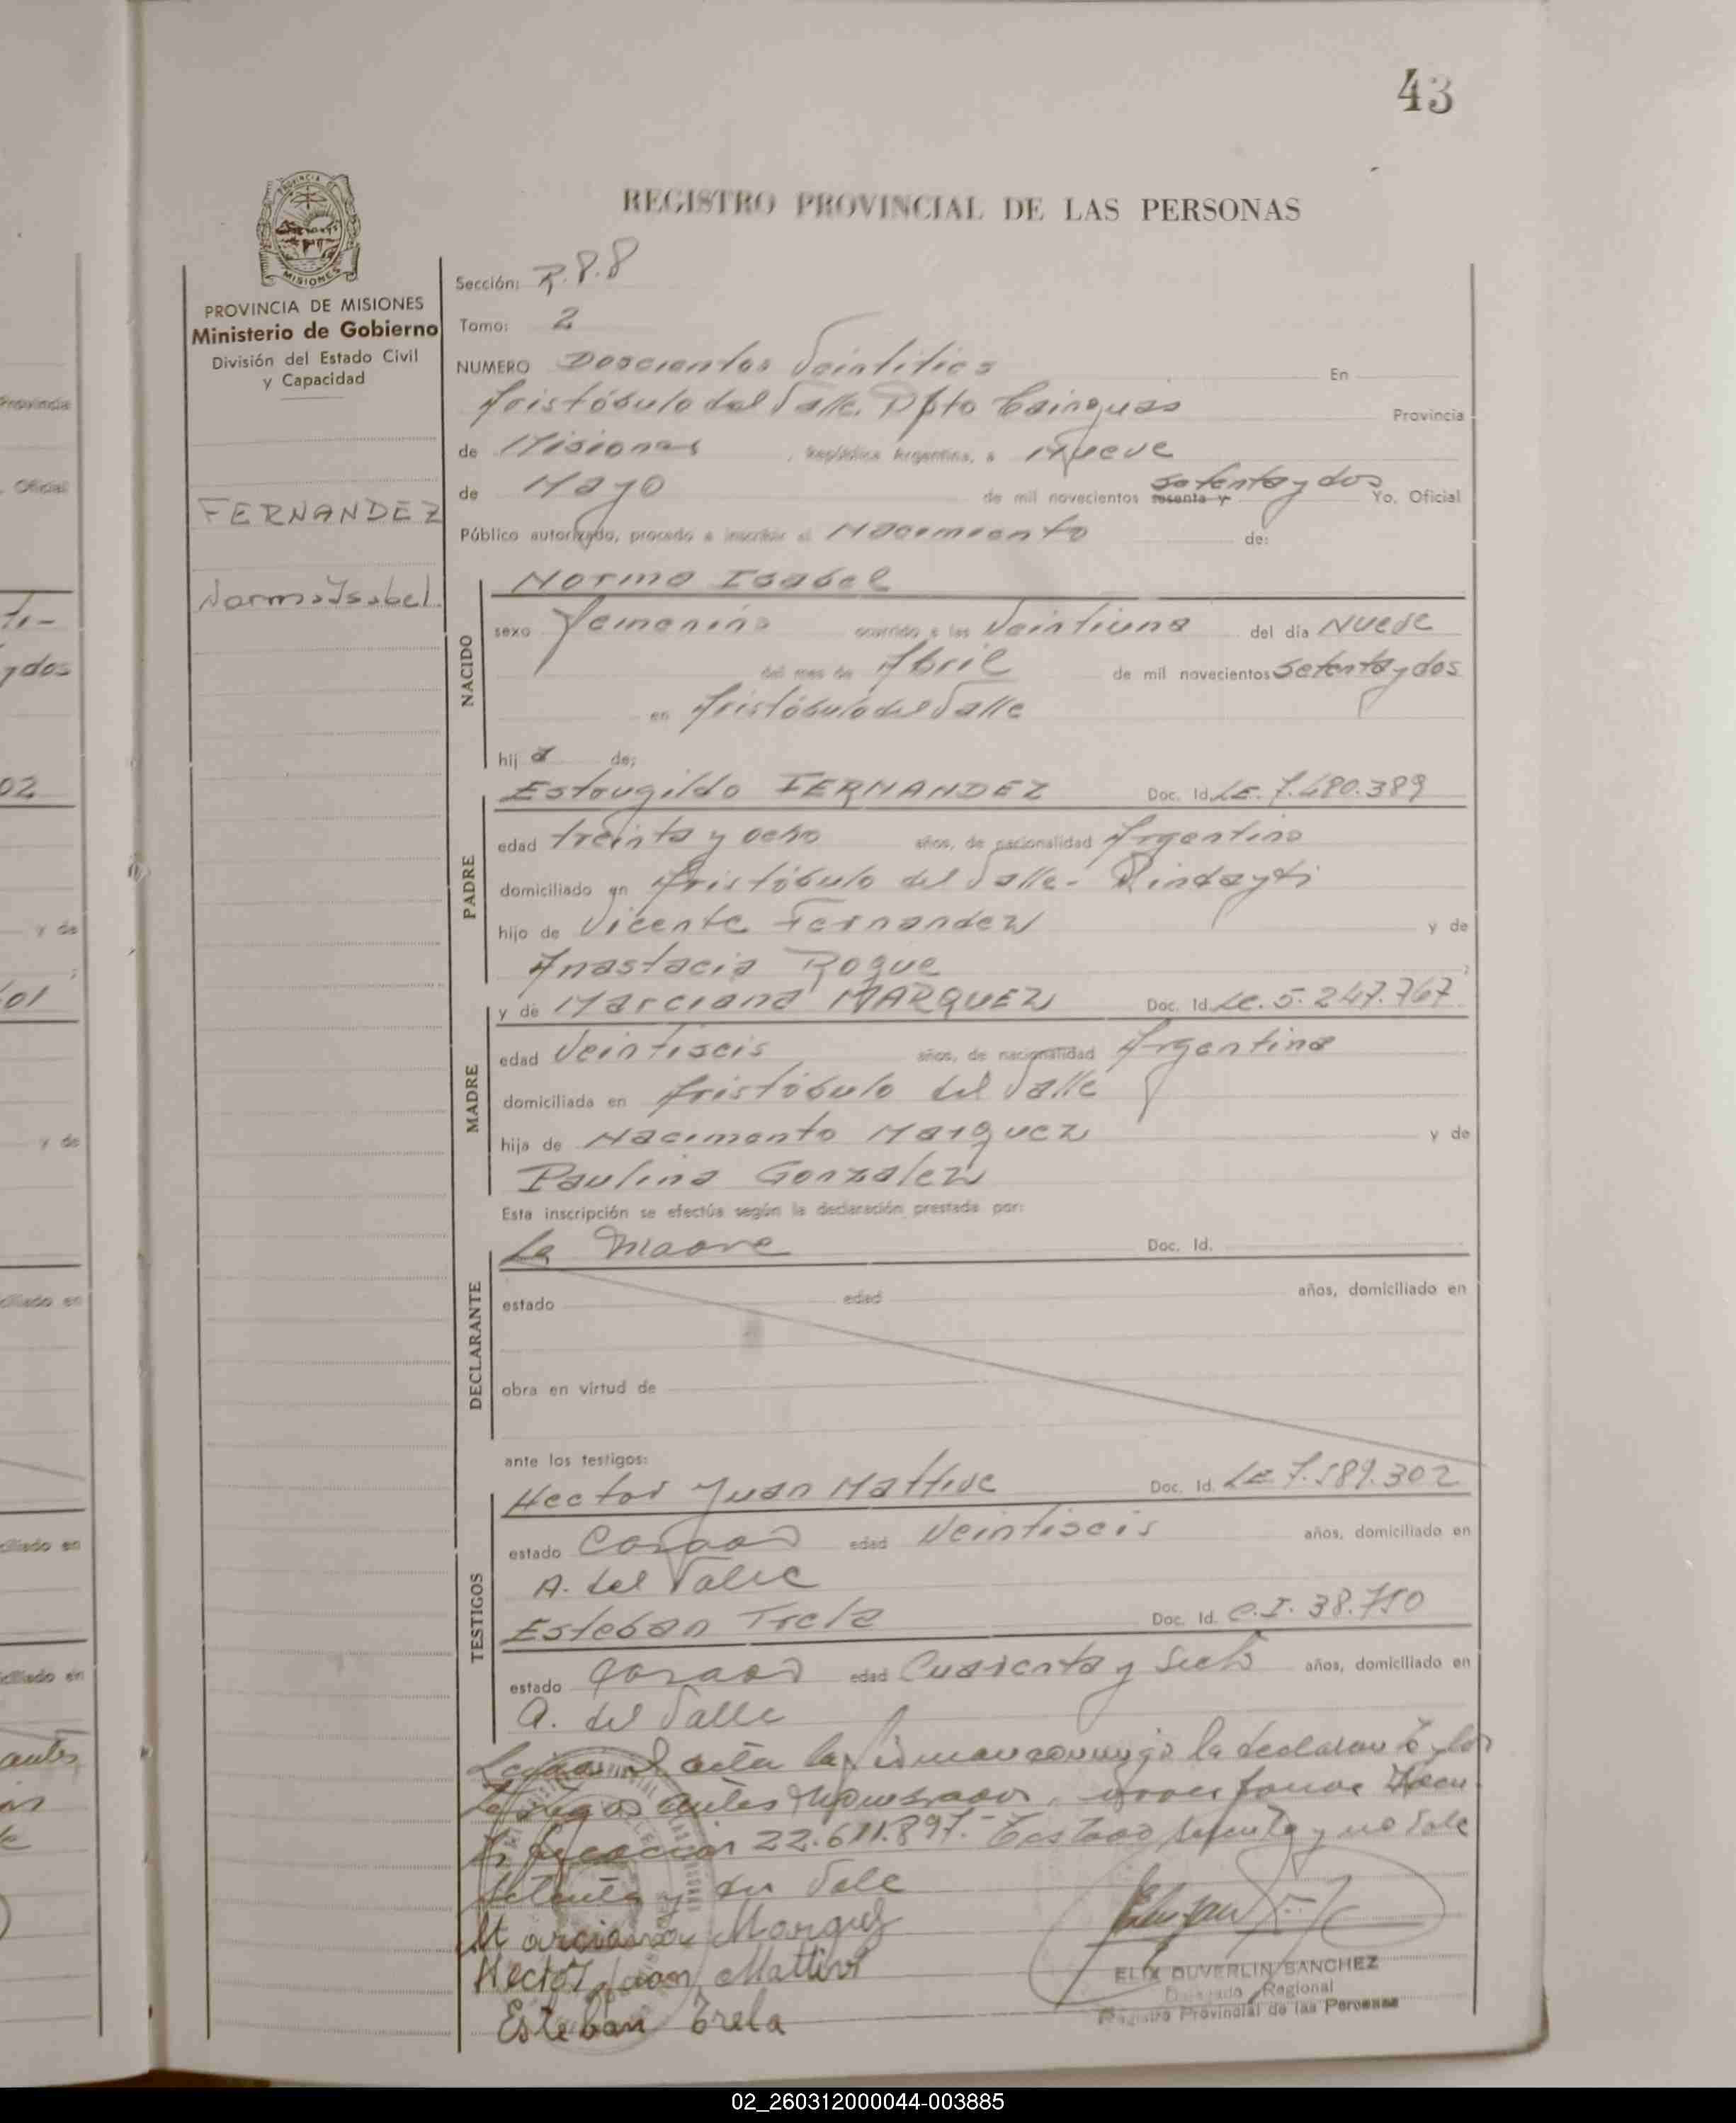 43
REGISTRO PROVINCIAL DE LAS PERSONAS
PROVINCIA DE
MISIONES
PROVINCIA DE MISIONES
Ministerio de Gobierno
División del Estado Civil
y Capacidad
FERNANDEZ
Norma Isabel.
Sección: R.P.P
Tomo: 2
NUMERO Doscientos Veintitres En
Aristóbulo del Valle. Dpto Cainguas Provincia
de Misiones, República Argentina, a Nueve
de Mayo de mil novecientos sesenta y setenta y dos Yo. Oficial
Público autorizado, procedo a inscribir el Nacimiento de:
NACIDO
Norma Isabel
sexo femenino ocurrido a las Veintiuna del día Nueve
del mes de Abril de mil novecientos setenta y dos
en Aristóbulo del Valle
hij a de:
PADRE
Estaugildo FERNANDEZ Doc. Id. LE. 7.480.389
edad treinta y ocho años, de nacionalidad Argentino
domiciliado en Aristóbulo del Valle-
hijo de Vicente Fernandez y de
Anastacia Roque
MADRE
y de Marciana MARQUEZ Doc. Id. LC. 5.247.767
edad Veintiseis años, de nacionalidad Argentina
domiciliada en Aristóbulo del Valle
hija de Nacimento Marquez y de
Paulina Gonzalez
Esta inscripción se efectúa según la declaración prestada por:
DECLARANTE
La madre Doc. Id.
estado edad años, domiciliado en
obra en virtud de
TESTIGOS
ante los testigos:
Hector Juan Mattive Doc. Id. LE 7.589.302
estado Casado edad Veintiseis años, domiciliado en
A. del Valle
Esteban Trela Doc. Id. C.I. 38.750
estado Casado edad Cuarenta y siete años, domiciliado en
A. del Valle
Leida el acta la firman conmigo la declarante y los
testigos antes nombrados,
22.611.897.- Testado sesenta y no Vale
setenta y dos Vale
Marciana Marquez
Hector Juan Mattive
Esteban Trela
ELIX DUVERLIN SANCHEZ
Delegado Regional
Registro Provincial de las Personas
02_260312000044-003885